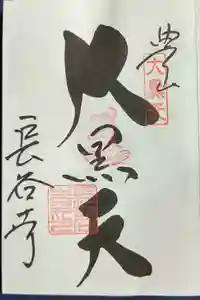 豊山
大黒天
長谷寺